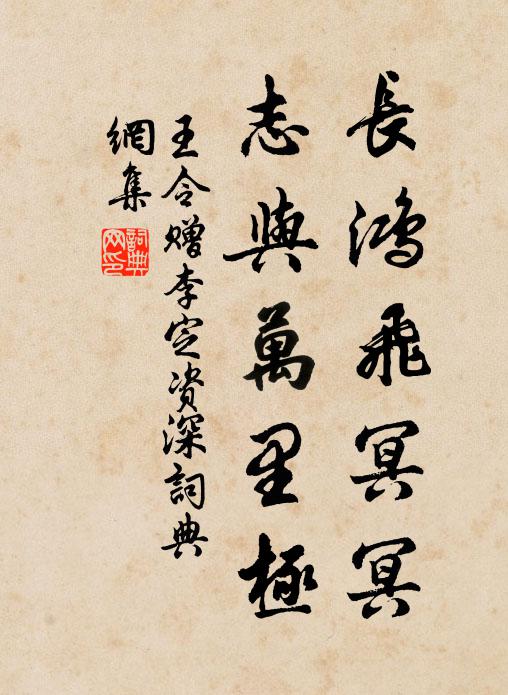 長鴻飛冥冥
志與萬里極
王令赠李定资深詞典
網集
詞典
网印